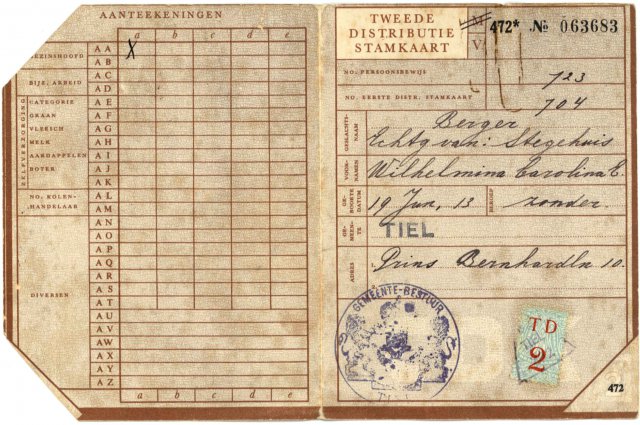 AANTEEKENINGEN
a b c d e
GEZINSHOOFD
BIJZ. ARBEID
ZELFVERZORGING
CATEGORIE
GRAAN
VLEESCH
MELK
AARDAPPELEN
BOTER
NO. KOLEN-
HANDELAAR
DIVERSEN
AA X
AB
AC
AD
AE
AF
AG
AH
AI
AJ
AK
AL
AM
AN
AO
AP
AQ
AR
AS
AT
AU
AV
AW
AX
AY
AZ
a b c d e
TWEEDE
DISTRIBUTIE
STAMKAART
M
V
472* No 063683
NO. PERSOONSBEWIJS
723
NO. EERSTE DISTR. STAMKAART
704
GESLACHTS-
NAAM
Berger
Echtg van: Stegehuis
VOOR-
NAMEN
Wilhelmina Carolina E.
GE-
BOORTE
DATUM
19 Jun, 13
BEROEP
zonder.
GE-
MEEN-
TE
TIEL
ADRES
1.
Prins Bernhardln 10.
2.
GEMEENTE-BESTUUR
TD
2
472